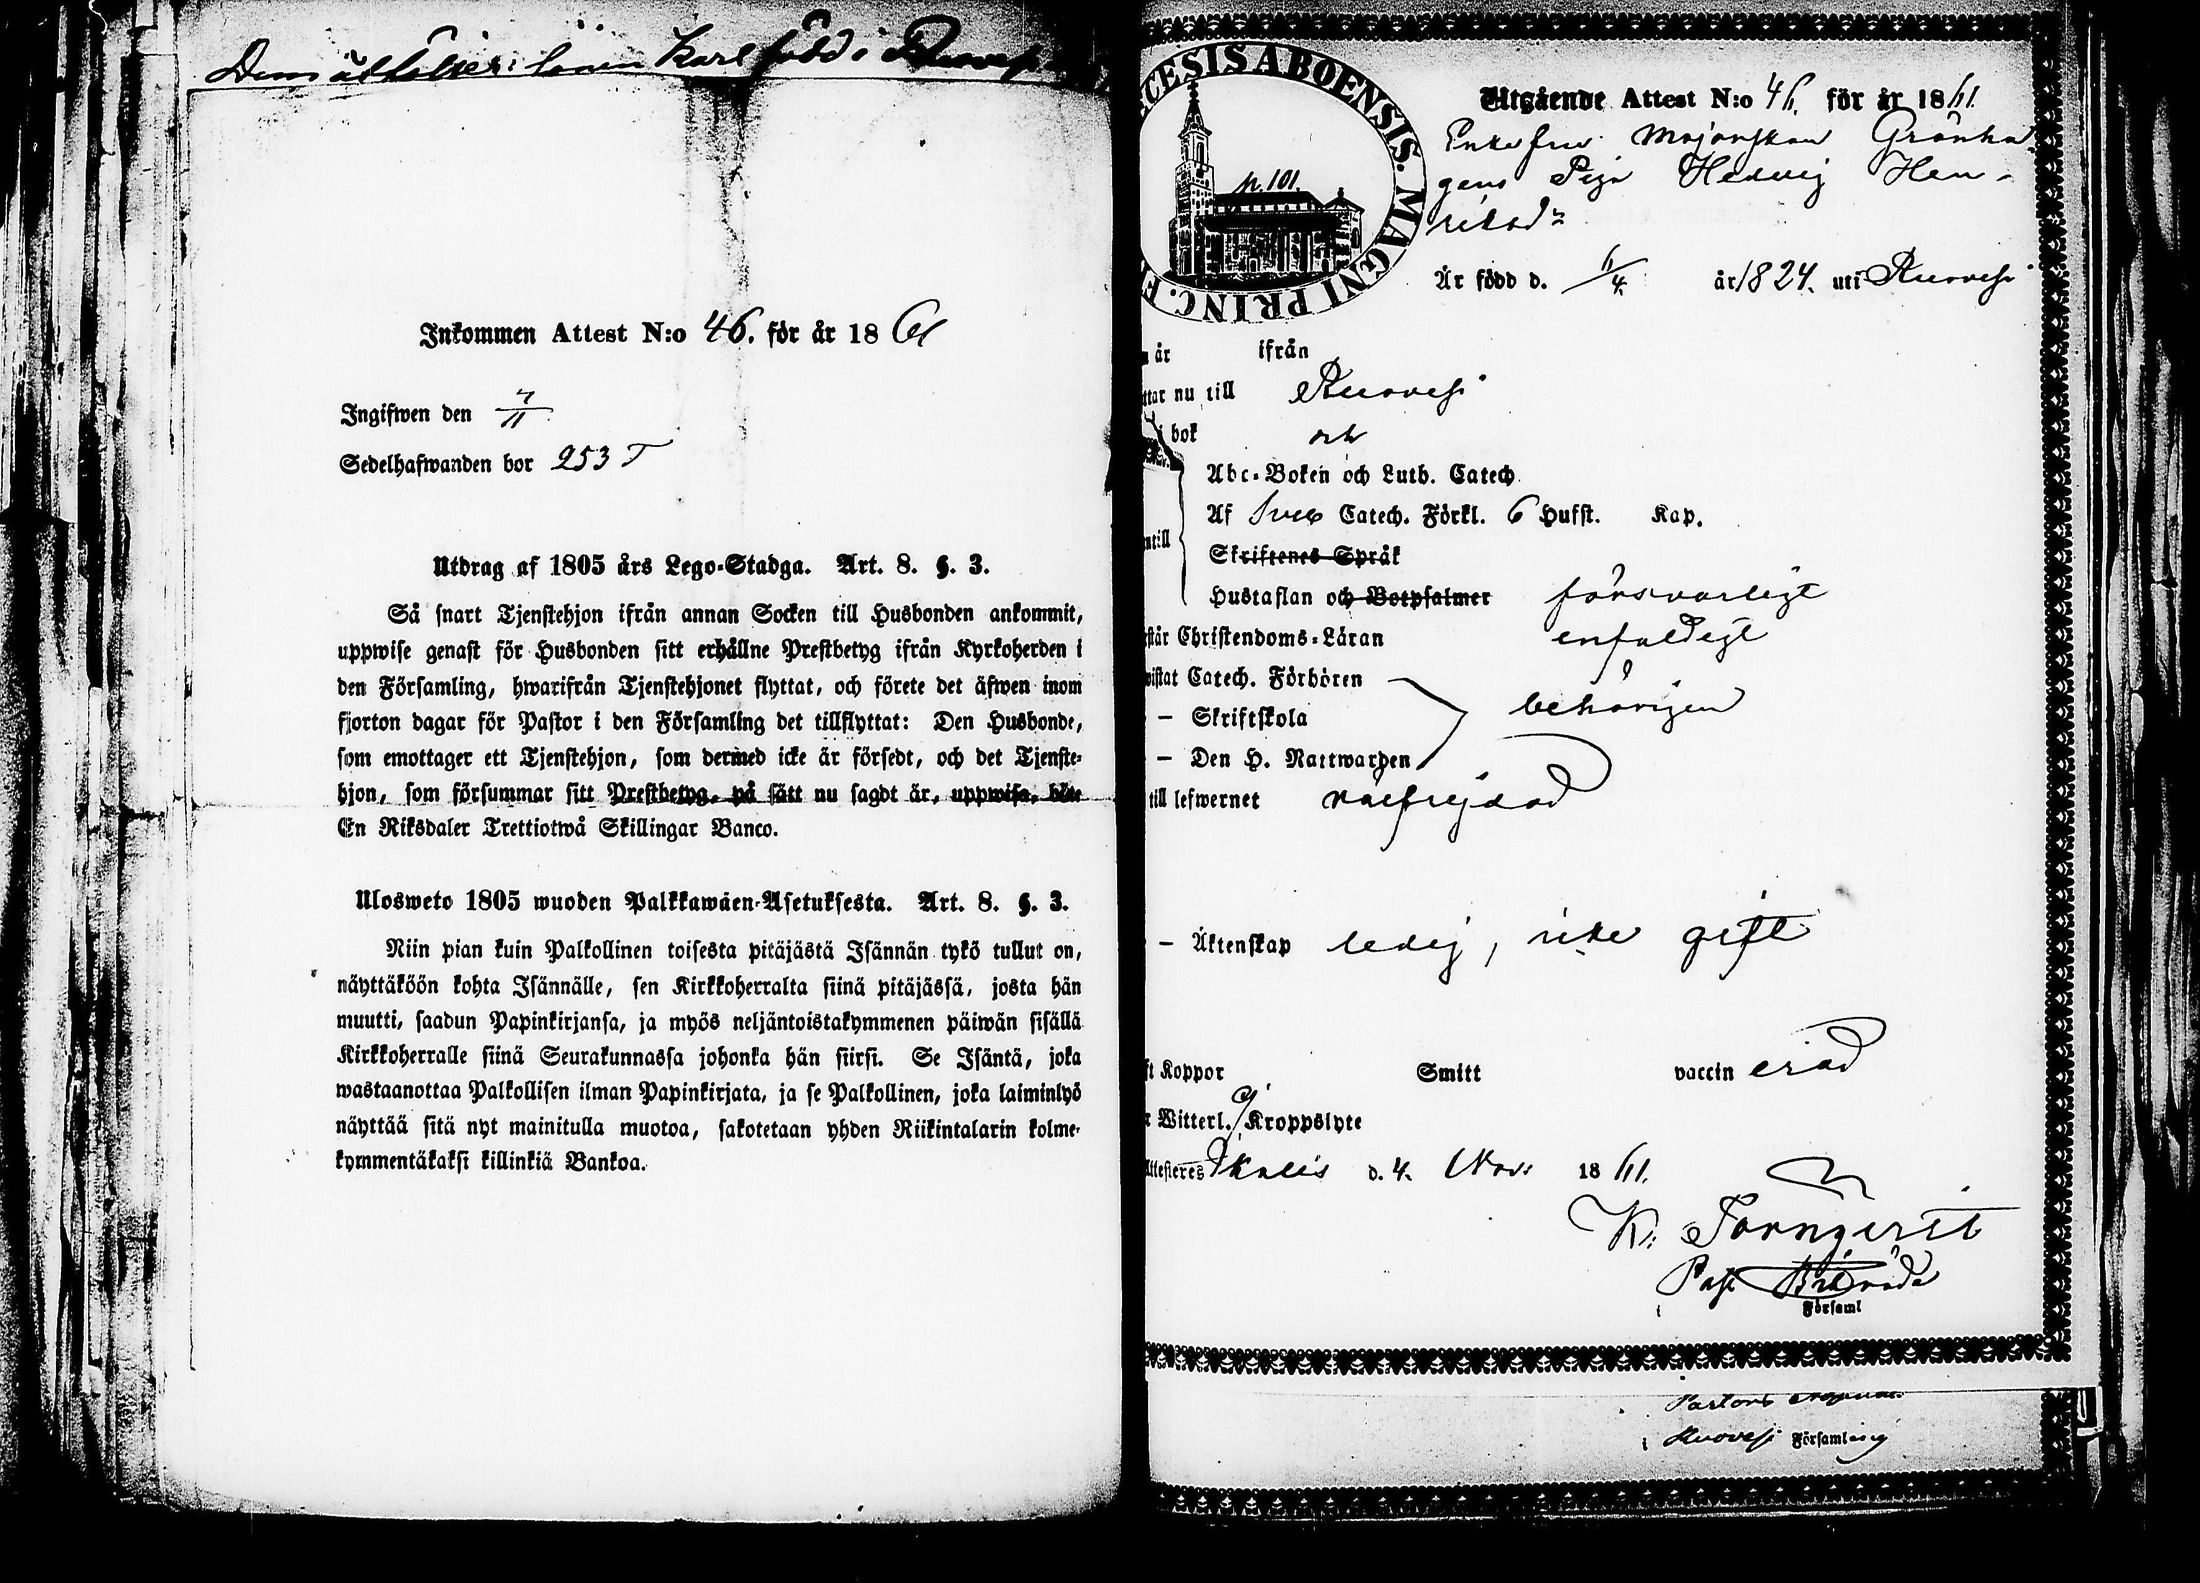 Dem åtföljer: sonen Karl född i Ruovesi
Inkommen Attest N:o 46. för år 1861
Ingifwen den 7/11
Sedelhafwanden bor 253 T
Utdrag af 1805 års Lego-Stadga. Art. 8. §. 3.
Så snart Tjenstehjon ifrån annan Socken till Husbonden ankommit,
uppwise genast för Husbonden sitt erhållne Prestbetyg ifrån Kyrkoherden i
den Församling, hwarifrån Tjenstehjonet flyttat, och förete det äfwen inom
fjorton dagar för Pastor i den Församling det tillflyttat: Den Husbonde,
som emottager ett Tjenstehjon, som dermed icke är försedt, och det Tjenste-
hjon, som försummar sitt Prestbetyg, på sätt nu sagdt är, uppwisa, böte
En Riksdaler Trettiotwå Skillingar Banco.
Ulosweto 1805 wuoden Palkkawäen-Asetuksesta. Art. 8. §. 3.
Niin pian kuin Palkollinen toisesta pitäjästä Isännän tykö tullut on,
näyttäköön kohta Isännälle, sen Kirkkoherralta siinä pitäjässä, josta hän
muutti, saadun Papinkirjansa, ja myös neljäntoistakymmenen päiwän sisällä
Kirkkoherralle siinä Seurakunnassa johonka hän siirsi. Se Isäntä, joka
wastaanottaa Palkollisen ilman Papinkirjata, ja se Palkollinen, joka laiminlyö
näyttää sitä nyt mainitulla muotoa, sakotetaan yhden Riikintalarin kolme-
kymmentäkaksi killinkiä Bankoa.
CESIS ABOENSIS. MAGNI PRINC. F
p. 101.
Utgående Attest N:o 46. för år 1861.
Enkefru Majorskan Grönha
gens Piga Hedvig Hen-
riksdr
Är född d. 6/4. år 1824. uti Ruovesi
år ifrån
ttar nu till Ruovesi
i bok och
Abc-Boken och Luth. Catech.
Af Sveb Catech. Förkl. 6 Hufst. Kap.
ntill
Skriftenes Språk
Hustaflan och Botpsalmer försvarligt
står Christendoms-Läran enfaldigt
wistat Catech. Förhören
— Skriftskola behörigen
— Den H. Nattwarden
till lefwernet välfrejdad
— Äktenskap ledig, icke gift
ft Koppor Smitt vaccinerad
r Witterl. Kroppslyte
Attesteres Ikalis d. 4. Nov: 1861.
K: Tornqvist
Past
Församl
Pastors
i Ruovesi Församling